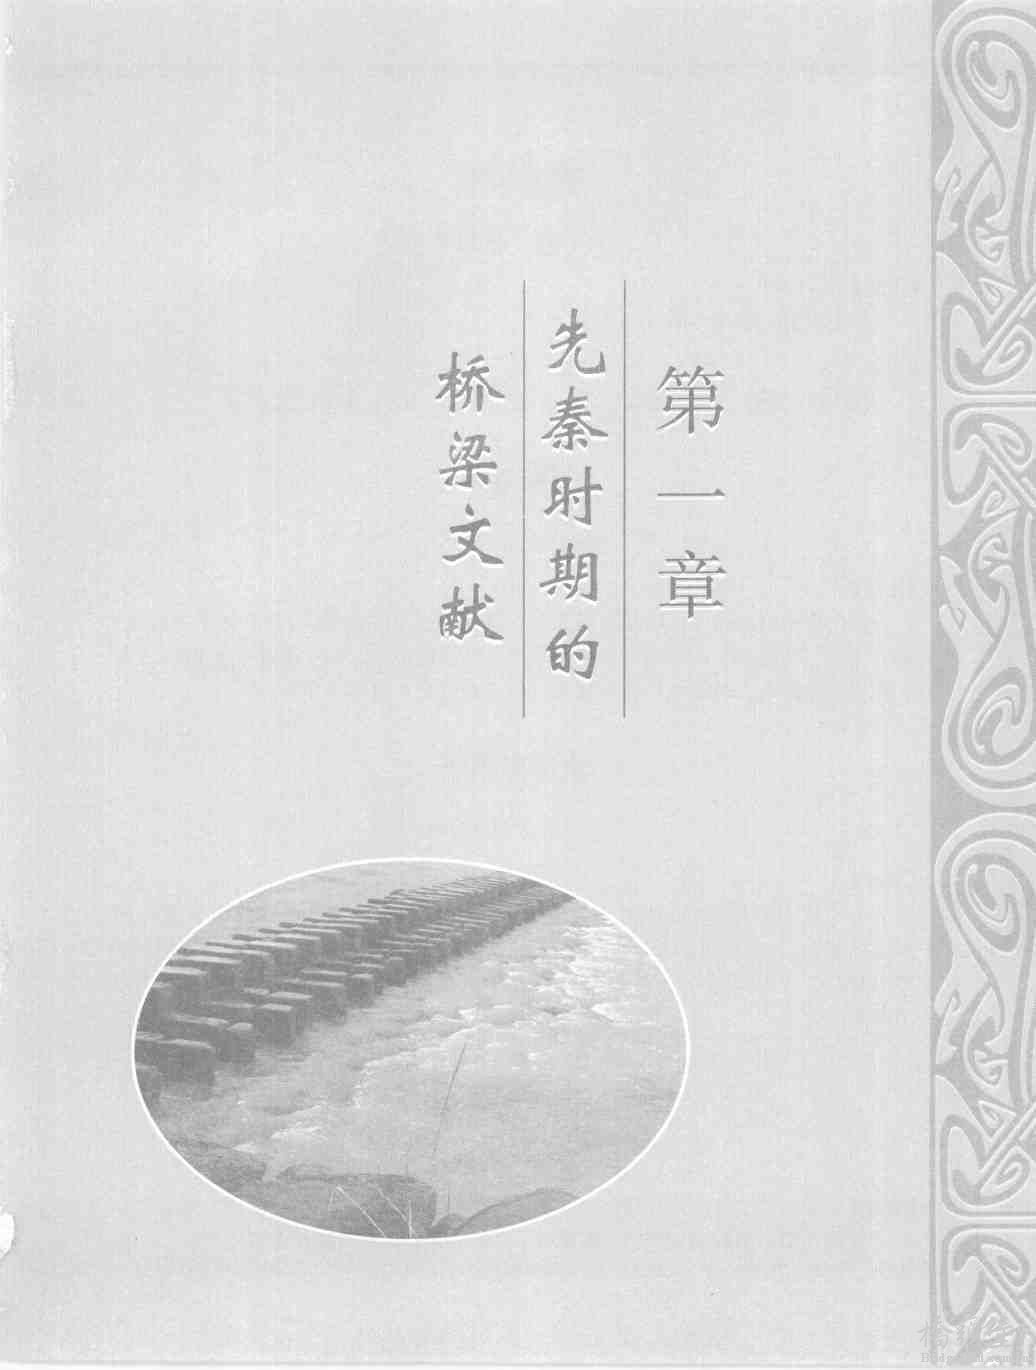 第一章
先秦时期的
桥梁文献